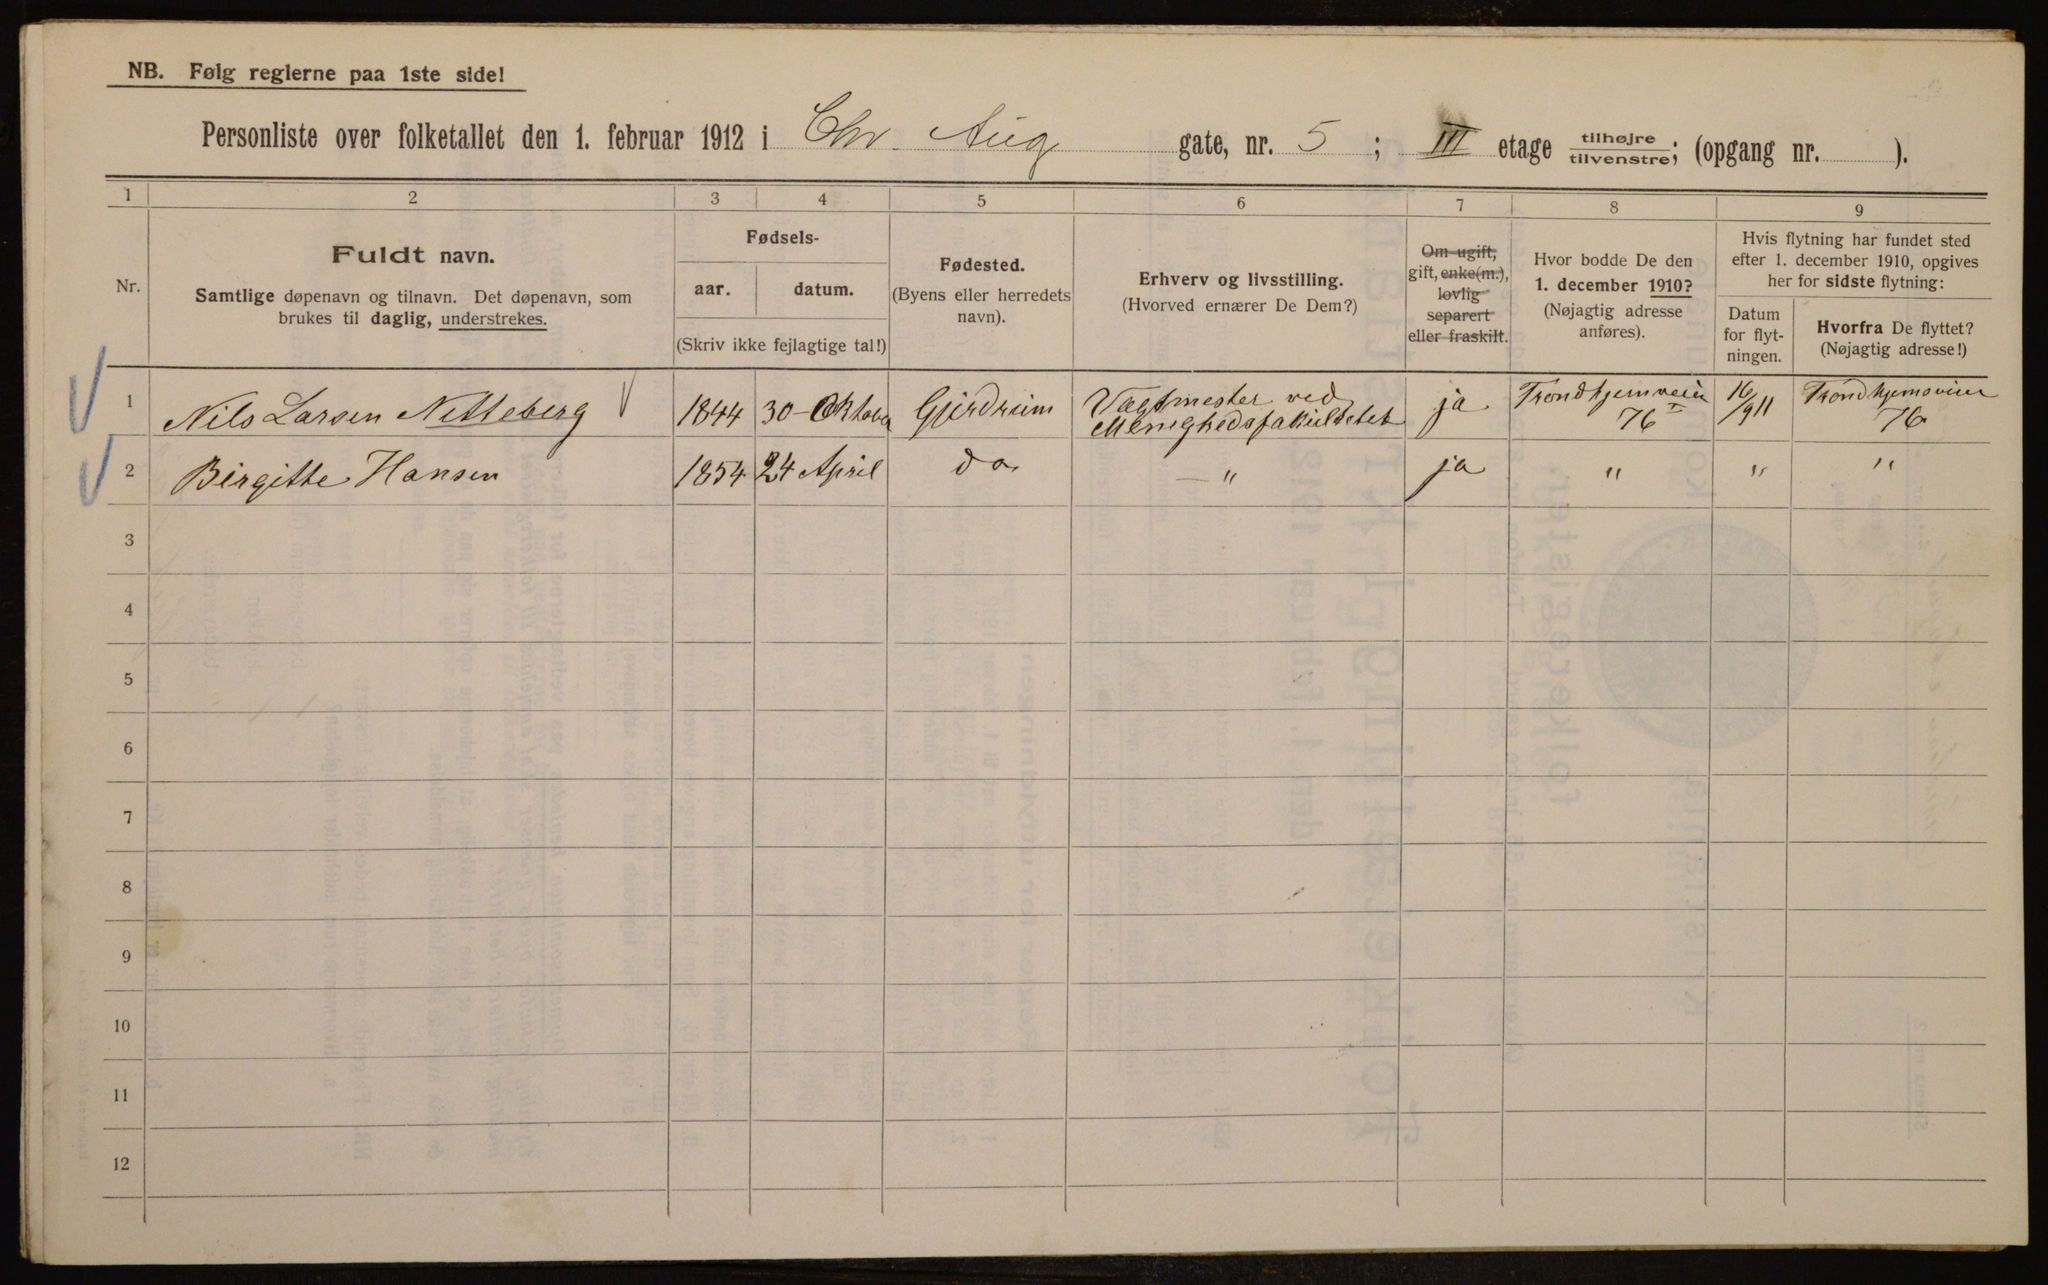 NB. Følg reglerne paa 1ste side!
Personliste over folketallet den 1. februar 1912 i Chr. Aug gate, nr. 5 ; III etage tilhøjre / tilvenstre; (opgang nr. ).
1 2 3 4 5 6 7 8 9
Nr.
Fuldt navn.
Samtlige døpenavn og tilnavn. Det døpenavn, som
brukes til daglig, understrekes.
Fødsels-
aar. datum.
(Skriv ikke fejlagtige tal!)
Fødested.
(Byens eller herredets
navn).
Erhverv og livsstilling.
(Hvorved ernærer De Dem?)
Om ugift,
gift, enke(m.),
lovlig
separert
eller fraskilt.
Hvor bodde De den
1. december 1910?
(Nøjagtig adresse
anføres).
Hvis flytning har fundet sted
efter 1. december 1910, opgives
her for sidste flytning:
Datum
for flyt-
ningen.
Hvorfra De flyttet?
(Nøjagtig adresse!)
1 Nils Larsen Nitteberg 1844 30 Oktober Gjerdrum Vagtmester ved Menighedsfakultetet ja Trondhjemveien 76 I 16/9 11 Trondhjemsveien 76
2 Birgitte Hansen 1854 24 April do — " ja " " "
3
4
5
6
7
8
9
10
11
12